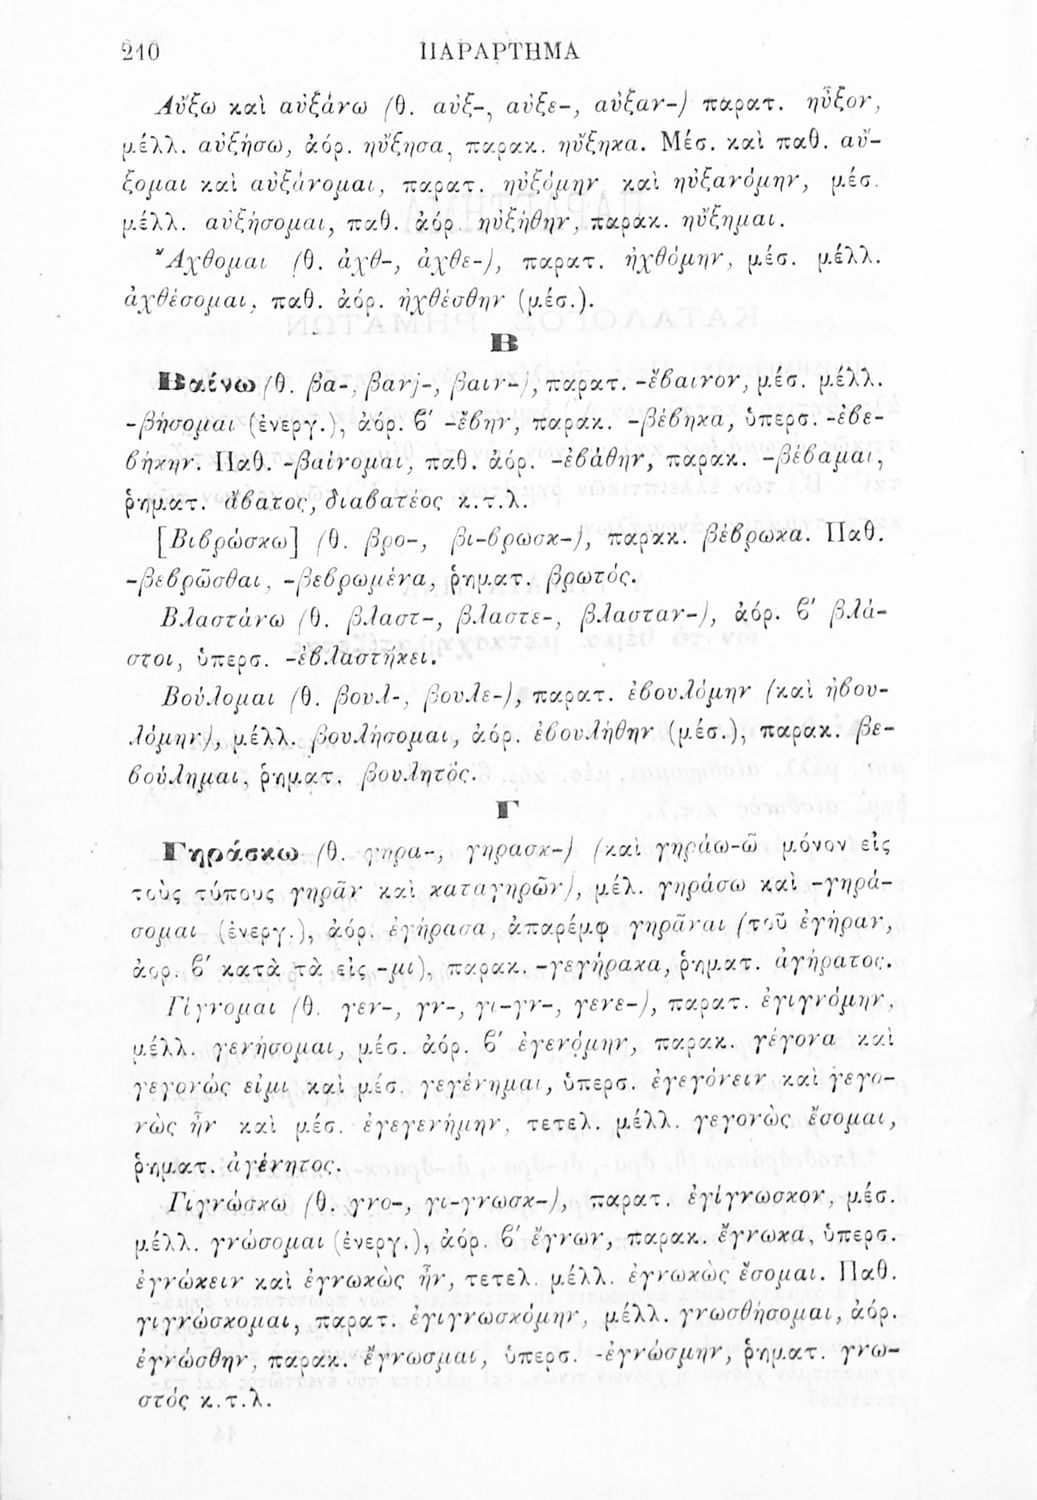 210 ΠΑΡΑΡΤΗΜΑ
Αὔξω καὶ αὐξάνω (θ. αὐξ-, αὐξε-, αὐξαν-) παρατ. ηὖξον,
μέλλ. αὐξήσω, ἀόρ. ηὔξησα, παρακ. ηὔξηκα. Μέσ. καὶ παθ. αὔ-
ξομαι καὶ αὐξάνομαι, παρατ. ηὐξόμην καὶ ηὐξανόμην, μέσ.
μέλλ. αὐξήσομαι, παθ. ἀόρ. ηὐξήθην, παρακ. ηὔξημαι.
Ἄχθομαι (θ. ἀχθ-, ἀχθε-), παρατ. ἠχθόμην, μέσ. μέλλ.
ἀχθέσομαι, παθ. ἀόρ. ἠχθέσθην (μέσ.).
Β
Βαίνω (θ. βα-, βανj-, βαιν-), παρατ. -ἔβαινον, μέσ. μέλλ.
-βήσομαι (ἐνεργ.), ἀόρ. ϐ′ -ἔϐην, παρακ. -βέϐηκα, ὑπερσ. -ἐϐε-
ϐήκην. Παθ. -βαίνομαι, παθ. ἀόρ. -ἐϐάθην, παρακ. -βέϐαμαι,
ῥηματ. ἄϐατος, διαϐατέος κ.τ.λ.
[Βιϐρώσκω] (θ. βρο-, βι-ϐρωσκ-), παρακ. βέϐρωκα. Παθ.
-βεϐρῶσθαι, -βεϐρωμένα, ῥηματ. βρωτός.
Βλαστάνω (θ. βλαστ-, βλαστε-, βλασταν-), ἀόρ. ϐ′ βλά-
στοι, ὑπερσ. -ἐϐλαστήκει.
Βούλομαι (θ. βουλ-, βουλε-), παρατ. ἐϐουλόμην (καὶ ἠϐου-
λόμην), μέλλ. βουλήσομαι, ἀόρ. ἐϐουλήθην (μέσ.), παρακ. βε-
ϐούλημαι, ῥηματ. βουλητός.
Γ
Γηράσκω (θ. γηρα-, γηρασκ-) (καὶ γηράω-ῶ μόνον εἰς
τοὺς τύπους γηρᾶν καὶ καταγηρῶν), μέλ. γηράσω καὶ -γηρά-
σομαι (ἐνεργ.), ἀόρ. ἐγήρασα, ἀπαρέμφ γηρᾶναι (τοῦ ἐγήραν,
ἀορ. ϐ′ κατὰ τὰ εἰς -μι), παρακ. -γεγήρακα, ῥηματ. ἀγήρατος.
Γίγνομαι (θ. γεν-, γν-, γι-γν-, γενε-), παρατ. ἐγιγνόμην,
μέλλ. γενήσομαι, μέσ. ἀόρ. ϐ′ ἐγενόμην, παρακ. γέγονα καὶ
γεγονώς εἰμι καὶ μέσ. γεγένημαι, ὑπερσ. ἐγεγόνειν καὶ γεγο-
νὼς ἦν καὶ μέσ. ἐγεγενήμην, τετελ. μέλλ. γεγονὼς ἔσομαι,
ῥηματ. ἀγένητος.
Γιγνώσκω (θ. γνο-, γι-γνωσκ-), παρατ. ἐγίγνωσκον, μέσ.
μέλλ. γνώσομαι (ἐνεργ.), ἀόρ. ϐ′ ἔγνων, παρακ. ἔγνωκα, ὑπερσ.
ἐγνώκειν καὶ ἐγνωκὼς ἦν, τετελ. μέλλ. ἐγνωκὼς ἔσομαι. Παθ.
γιγνώσκομαι, παρατ. ἐγιγνωσκόμην, μέλλ. γνωσθήσομαι, ἀόρ.
ἐγνώσθην, παρακ. ἔγνωσμαι, ὑπερσ. -ἐγνώσμην, ῥηματ. γνω-
στός κ.τ.λ.